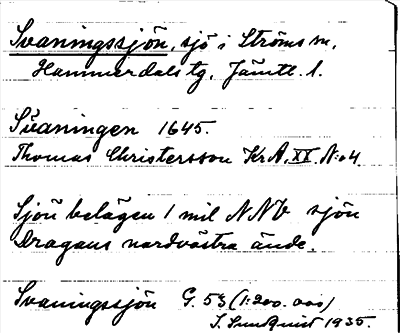 Svaningssjön, sjö i Ströms sn,
Hammerdals tg, Jämtl. l.
Svaningen 1645.
Thomas Christersson KrA, XX. N:o 4
Sjön belägen 1 mil NNV sjön
Dragans nordvästra ände.
Svaningssjön G. 53 (1:200.000)
S. Sundquist 1935.